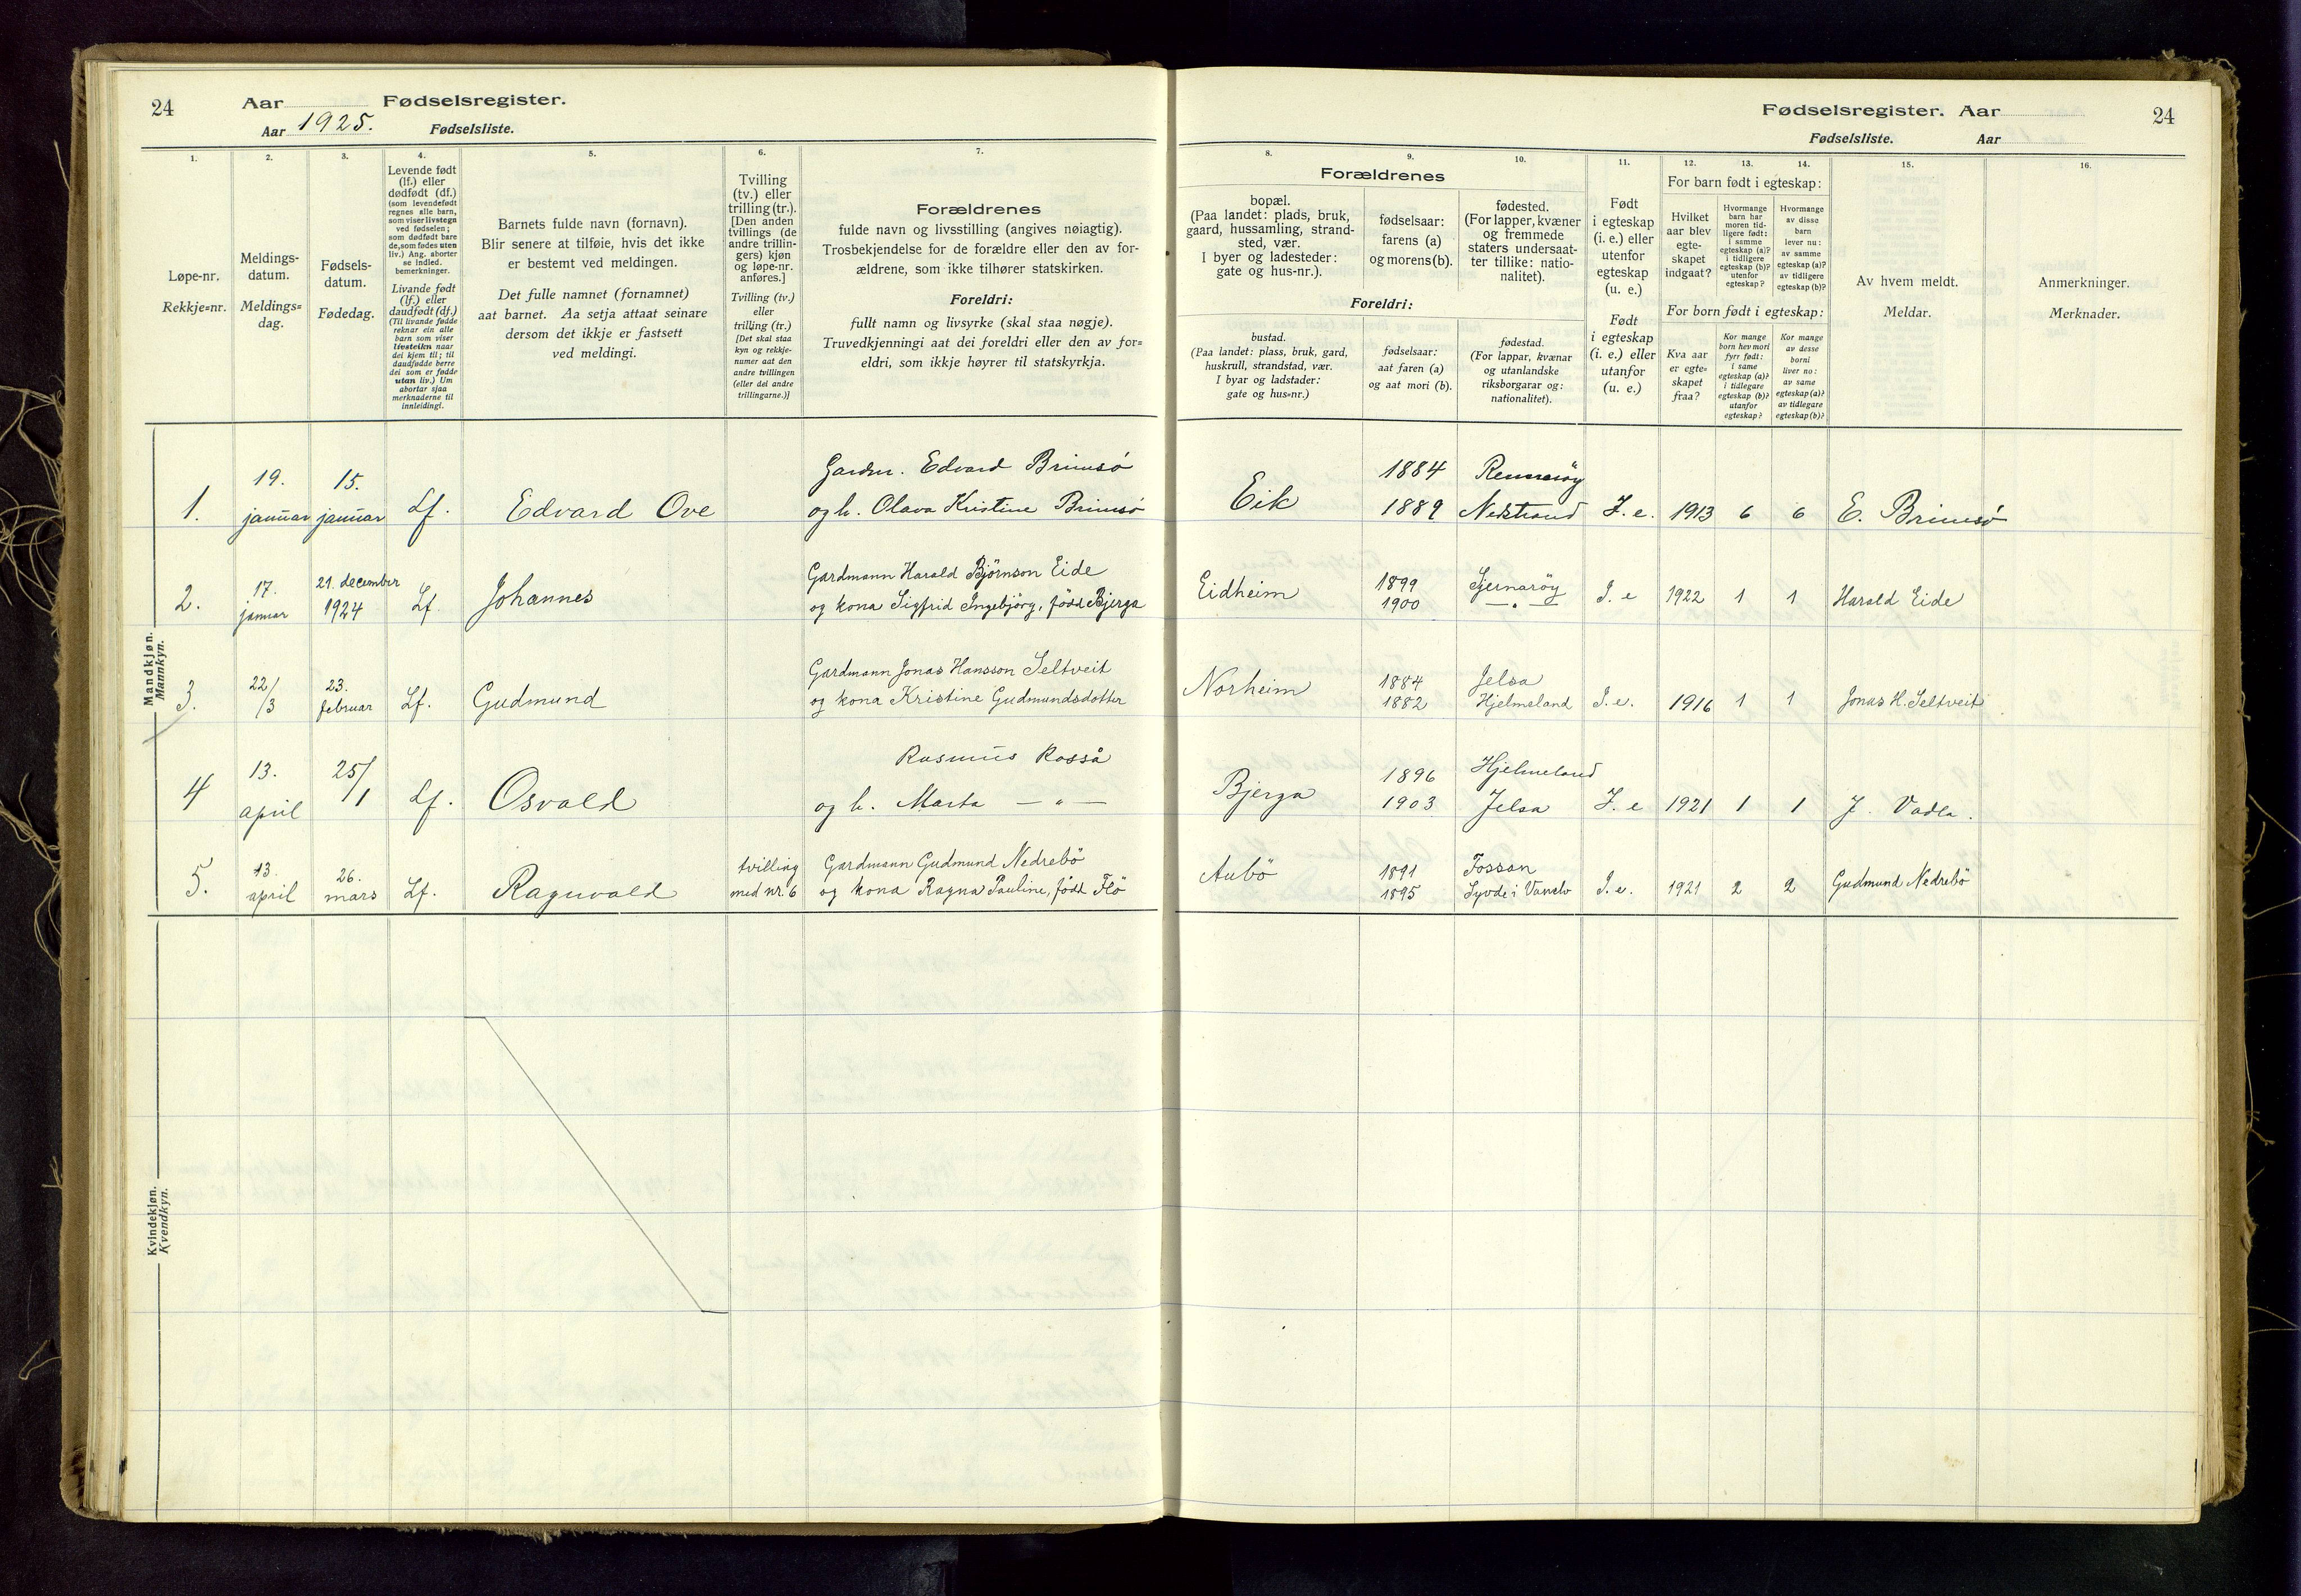 24
Aar Fødselsregister.
Aar 1925. Fødselsliste.
1.
2.
3.
4.
5.
6.
7.
Løpe-nr.
Rekkje=nr.
Meldings-
datum.
Meldings=
dag.
Fødsels-
datum.
Fødedag.
Levende født
(lf.) eller
dødfødt (df.)
(som levendefødt
regnes alle barn,
som viser livstegn
ved fødselen;
som dødfødt bare
de, som fødes uten
liv.) Ang. aborter
se indled.
bemerkninger.
Livande født
(lf.) eller
daudfødt (df.)
(Til livande fødde
reknar ein alle
barn som viser
livsteikn naar
dei kjem til; til
daudfødde berre
dei som er fødde
utan liv.) Um
abortar sjaa
merknaderne til
innleidingi.
Barnets fulde navn (fornavn).
Blir senere at tilføie, hvis det ikke
er bestemt ved meldingen.
Det fulle namnet (fornamnet)
aat barnet. Aa setja attaat seinare
dersom det ikkje er fastsett
ved meldingi.
Tvilling
(tv.) eller
trilling (tr.).
[Den anden
tvillings (de
andre trillin-
gers) kjøn
og løpe-nr.
anføres.]
Tvilling (tv.)
eller
trilling (tr.)
[Det skal staa
kyn og rekkje-
numer aat den
andre tvillingen
(eller dei andre
trillingarne.)]
Forældrenes
fulde navn og livsstilling (angives nøiagtig).
Trosbekjendelse for de forældre eller den av for-
ældrene, som ikke tilhører statskirken.
Foreldri:
fullt namn og livsyrke (skal staa nøgje).
Truvedkjenningi aat dei foreldri eller den av for=
eldri, som ikkje høyrer til statskyrkja.
Mandkjøn.
Mannkyn.
1. 19. januar 15. januar Lf. Edvard Ove
Gardm. Edvard Brimsö
og h. Olava Kristine Brimsö
2. 17. januar 21. december 1924 Lf. Johannes
Gardmann Harald Björnson Eide
og kona Sigfrid Ingebjörg, född Bjerga
3. 22/3 23. februar Lf. Gudmund
Gardmann Jonas Hansson Seltveit
og kona Kristine Gudmundsdotter
4 13. april 25/1 Lf. Osvald
Rasmus Rosså
og h. Marta — " —
5. 13. april 26. mars Lf. Ragnvald
tvilling
med nr. 6
Gardmann Gudmund Nedrebö
og kona Ragna Pauline, född Flö
Kvindekjøn.
Kvendkyn.
Fødselsregister. Aar
24
Fødselsliste. Aar
8.
9.
10.
11.
12.
13.
14.
15.
16.
Forældrenes
bopæl.
(Paa landet: plads, bruk,
gaard, hussamling, strand-
sted, vær.
I byer og ladesteder:
gate og hus-nr.).
fødselsaar:
farens (a)
og morens (b).
fødested.
(For lapper, kvæner
og fremmede
staters undersaat-
ter tillike: natio-
nalitet).
Foreldri:
bustad.
(Paa landet: plass, bruk, gard,
huskrull, strandstad, vær.
I byar og ladstader:
gate og hus=nr.)
fødselsaar:
aat faren (a)
og aat mori (b).
fødestad.
(For lappar, kvænar
og utanlandske
riksborgarar og:
nationalitet).
Født
i egteskap
(i. e.) eller
utenfor
egteskap
(u. e.)
Født
i egteskap
(i. e.) eller
utanfor
(u. e.)
For barn født i egteskap:
Hvilket
aar blev
egte-
skapet
indgaat?
Hvormange
barn har
moren tid-
ligere født:
i samme
egteskap (a)?
i tidligere
egteskap (b)?
utenfor
egteskap?
Hvormange
av disse
barn
lever nu:
av samme
egteskap (a)?
av tidligere
egteskap (b)?
For born født i egteskap:
Kva aar
er egte=
skapet
fraa?
Kor mange
born hev mori
fyrr født:
i same
egteskap (a)?
i tidlegare
egteskap (b)?
utanfor
egteskap?
Kor mange
av desse
borni
liver no:
av same
egteskap (a)?
av tidlegare
egteskap (b)?
Av hvem meldt.
Meldar.
Anmerkninger.
Merknader.
Eik 1884 Rennesöy
1889 Nedstrand I. e. 1913 6 6 E. Brimsö
Eidheim 1899 Sjernaröy
1900 — " — I. e 1922 1 1 Harald Eide
Norheim 1884 Jelsa
1882 Hjelmeland I. e. 1916 1 1 Jonas H. Seltveit
Bjerga 1896 Hjelmeland
1903 Jelsa I. e 1921 1 1 J. Vadla.
Aubö 1891 Fossan
1895 Syvde i I. e. 1921 2 2 Gudmund Nedrebö